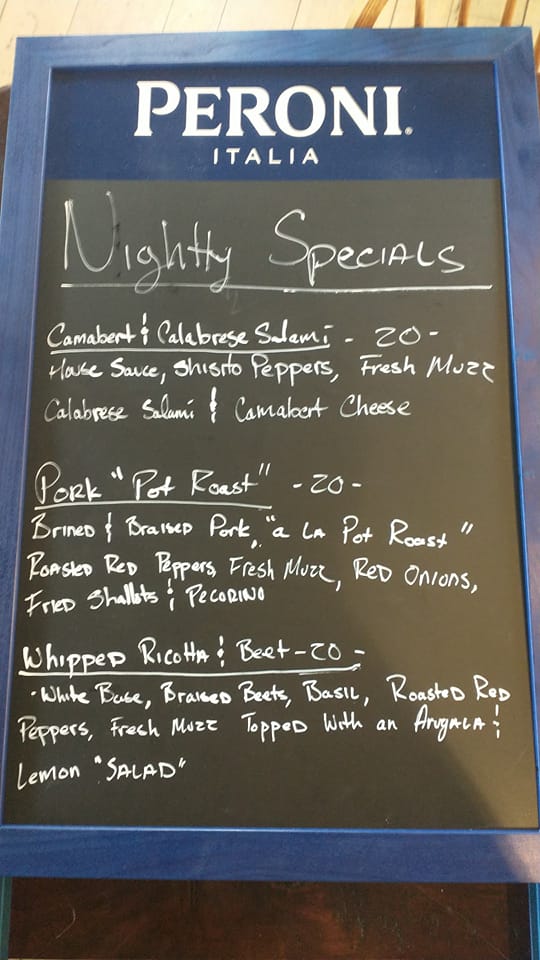 PERONI®
ITALIA
Nightly Specials
Camabert & Calabrese Salami - 20 -
House Sauce, Shisito Peppers, Fresh Muzz
Calabrese Salami & Camabert Cheese
Pork "Pot Roast" - 20 -
Brined & Braised Pork, "a La Pot Roast"
Roasted Red Peppers, Fresh Muzz, Red Onions,
Fried Shallots & Pecorino
Whipped Ricotta & Beet - 20 -
- White Base, Braised Beets, Basil, Roasted Red
Peppers, Fresh Muzz Topped With an Arugala &
Lemon "SALAD"